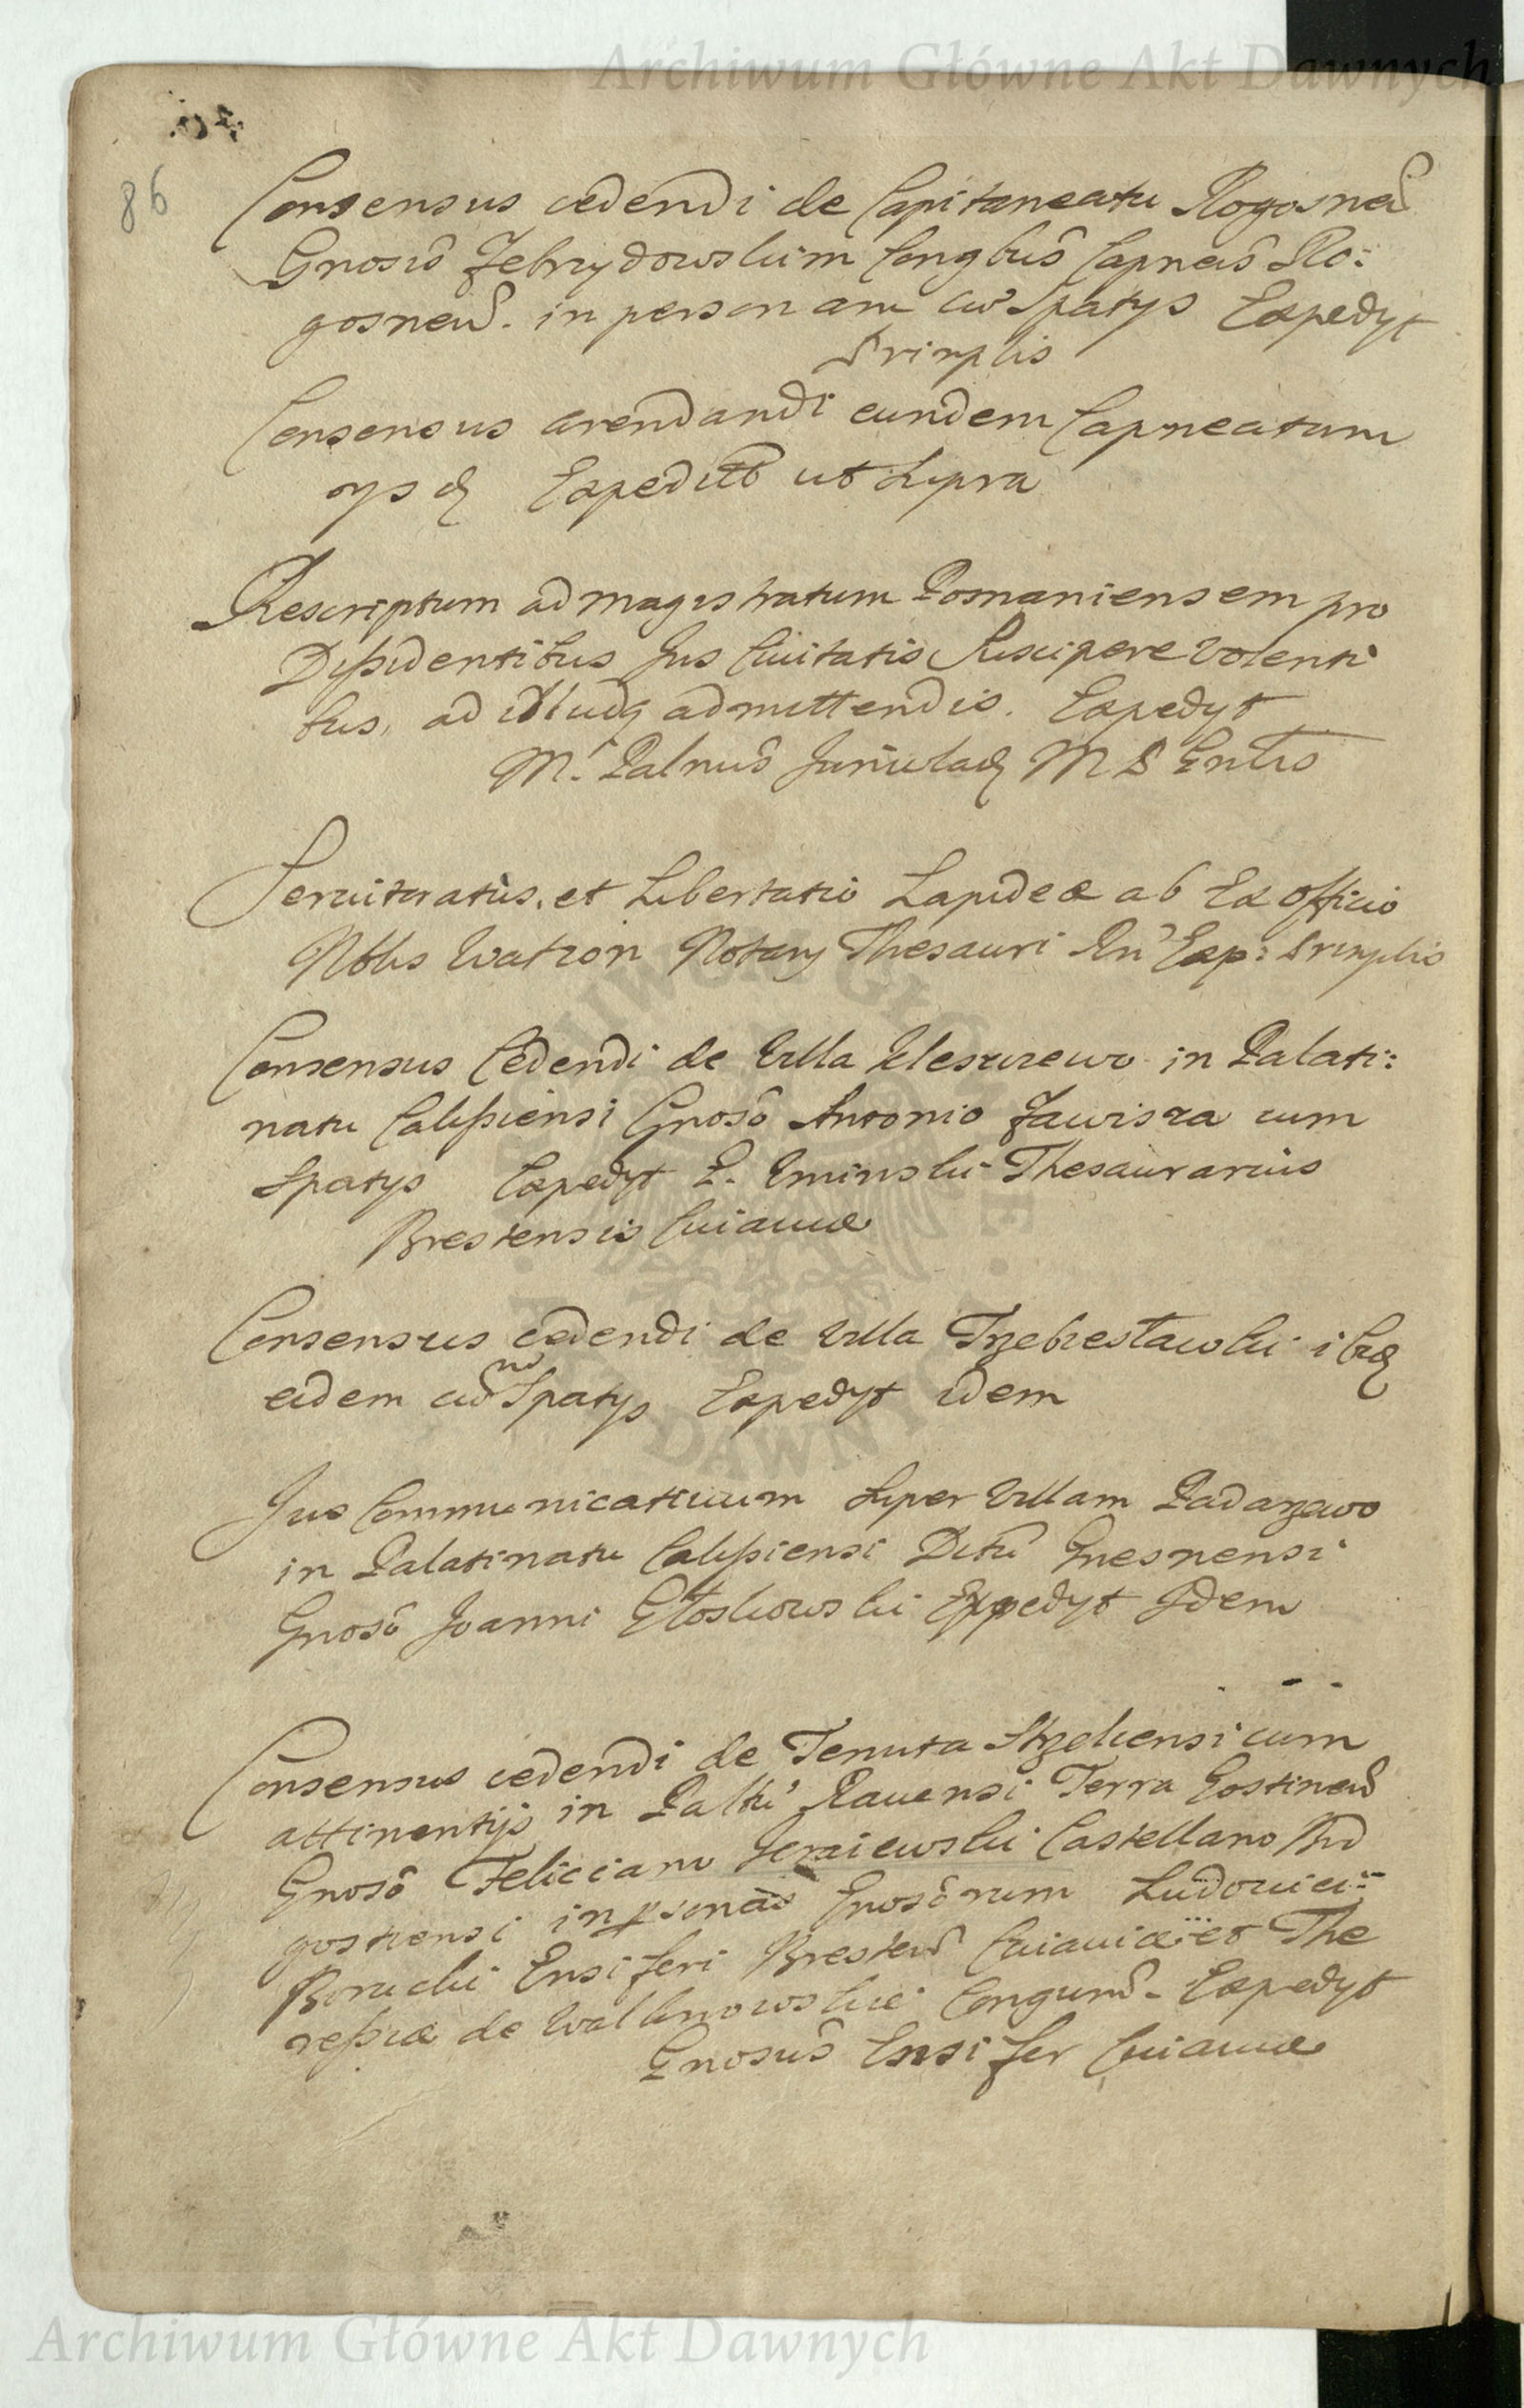 Archiwum Główne Akt Dawnych
86
Consensus cedendi de Capitaneatu Rogosnen
Gnosis Zebrzydowskim Congbus Capneis Ro:
gosnen. in personam cu Spatys Expedyt
Srimplis
Consensus arendandi eundem Capneatum
ysd Expeditt ut supra
Rescriptum ad magistratum Posnaniensem pro
Dissidentibus Jus Civitatis Suscipere volenti
bus, ad illudq admittendis. Expedyt
M. Palnus M S Gntis
Servitoratus, et Libertatio Lapideæ ab Ex officio
Nobis Watzon Notary Thesauri Rn Exp: Srimplis
Consensus Cedendi de Villa Kleszczewo in Palati:
natu Calissiensi Gnoso Antonio Zawisza cum
Spatys Expedyt P. Uminski Thesaurarius
Brestensis Cuiaviæ
Consensus cedendi de Villa Trzebiesławki ibid
eidem cu no Spatys Expedyt idem
Jus Communicativum super Villam Padarzewo
in Palatinatu Calissiensi Dctu Gnesnensi
Gnoso Joanni Głoskowski Expedyt Idem
Consensus cedendi de Tenuta Strzelcensi cum
attinentijs in Paltu Ravensi Terra Gostinen
Gnoso Feliciano Castellano Byd
gostiensi in psonas Gnosorum Ludovici
Borucki Ensiferi Bresten Cuiaviæ et The
ressiæ de Walknowskie Congum Expedyt
Gnosus Ensifer Cuiaviæ
ARCHIWUM GŁÓWNE AKT DAWNYCH
Archiwum Główne Akt Dawnych